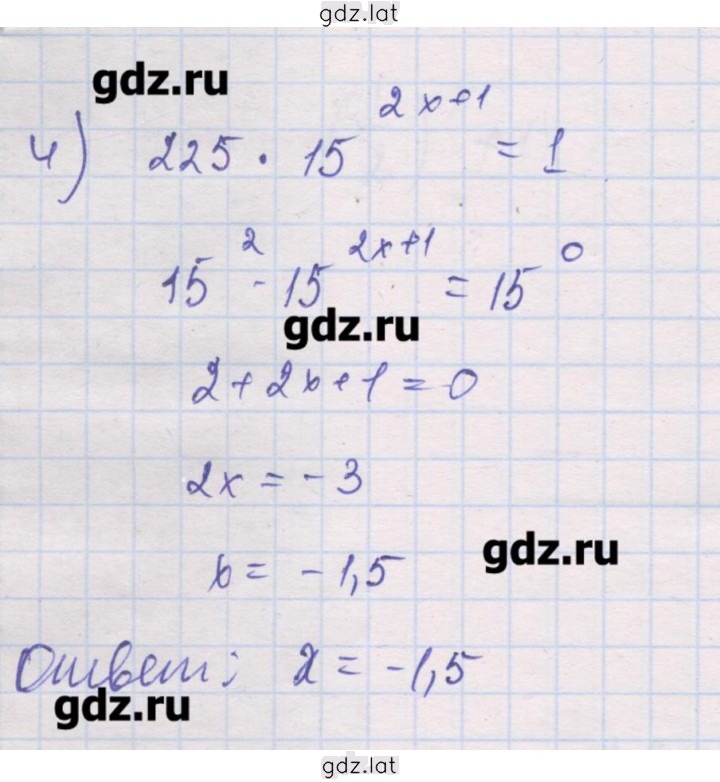 gdz.lat
gdz.ru
4) 225 · 15^{2x+1} = 1
15^2 · 15^{2x+1} = 15^0
gdz.ru
2 + 2x + 1 = 0
2x = - 3
gdz.ru
x = - 1,5
Ответ: x = - 1,5
gdz.ru
gdz.lat